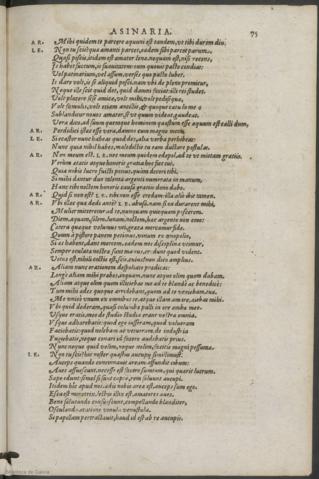 ASINARIA. 75
AR. Mihi quidem te parcere aequum est tandem, ut tibi durem diu.
LE. Non tu scis? quae amanti parcet, eadem sibi parcet parum.
Quasi piscis, itidem est amator lenae, nequam est, nisi recens,
Is habet succum, is suavitatem: eum quovis pacto condias:
Vel patinarium, vel assum, verses quo pacto lubet.
Is dare vult, is se aliquid posci, nam ubi de pleno promitur,
Neque ille scit quid det, quid damni faciat: illi rei studet.
Vult placere sese amicae, vult mihi, vult pedisequae,
Vult famulis, vult etiam ancillis, & quoque catulo meo
Subblanditur novus amator, se ut quum videat, gaudeat.
Vera dico, ad suum quemque hominem quaestum esse aequum est callidum,
AR. Perdidici istaec esse vera, damno cum magno meo.
LE. Si ecastor nunc habeas quod des, alia verba perhibeas:
Nunc quia nihil habes, maledictis eam ductare postulas.
AR. Non meum est. LE. nec meum quidem edepol, ad te ut mittam gratiis.
Verum aetatis atque honoris gratia hoc fiet tui,
Quia nobis lucro fuisti potius, quam decori tibi.
Si mihi dantur duo talenta argenti numerata in manum,
Hanc tibi noctem honoris causa gratiis dono dabo.
AR. Quid si non est? LE. tibi non esse credam: illa alio ibit tamen.
AR. Ubi illaec quae dedi ante? LE. abusa. nam si ea durarent mihi,
Mulier mitteretur ad te, nunquam quicquam poscerem.
Diem, aquam, solem, lunam, noctem, haec argento non emo:
Cetera quaeque volumus uti, graeca mercamur fide.
Quum a pistore panem petimus, vinum ex oenopolio,
Si aes habent, dant mercem. eadem nos disciplina utimur,
Semper oculatae nostrae sunt manus, credunt quod vident.
Vetus est, nihili coctio est, scis, cuius: non dico amplius.
AR. Aliam nunc orationem despoliato praedicas:
Longe aliam mihi prabes, inquam, nunc atque olim quum dabam.
Aliam atque olim quum illiciebas me ad te blande ac benedice:
Tum mihi aedes quoque arridebant, quum ad te veniebam tuae.
Me unice unum ex omnibus te, atque illam amare, aiebas mihi.
Ubi quid dederam, quasi columbae pulli in ore ambae meo
Usque eratis, meo de studio studia erant vestra omnia.
Usque adhaerebatis: quod ego iusseram, quod volueram
Faciebatis: quod nolebam ac vetueram, de industria
Fugiebatis, neque conari id facere audebatis prius.
Nunc neque quid velim, neque nolim, facitis magni pessumae.
LE. Non tu scis? hic noster quaestus aucupi simillimust.
Auceps quando concinnavit aream, offundit cibum:
Aves assuescunt, necesse est facere sumtum, qui quaerit lucrum.
Saepe edunt: semel si sunt captae, rem solvunt aucupi.
Itidem hic apud nos, aedis nobis area est, auceps sum ego.
Esca est meretrix, lectus illex est, amatores aves.
Bene salutando consuescunt, compellando blanditer,
Osculando, oratione venula venustula.
Si papillam pertractavit, haud id est ab re aucupis.